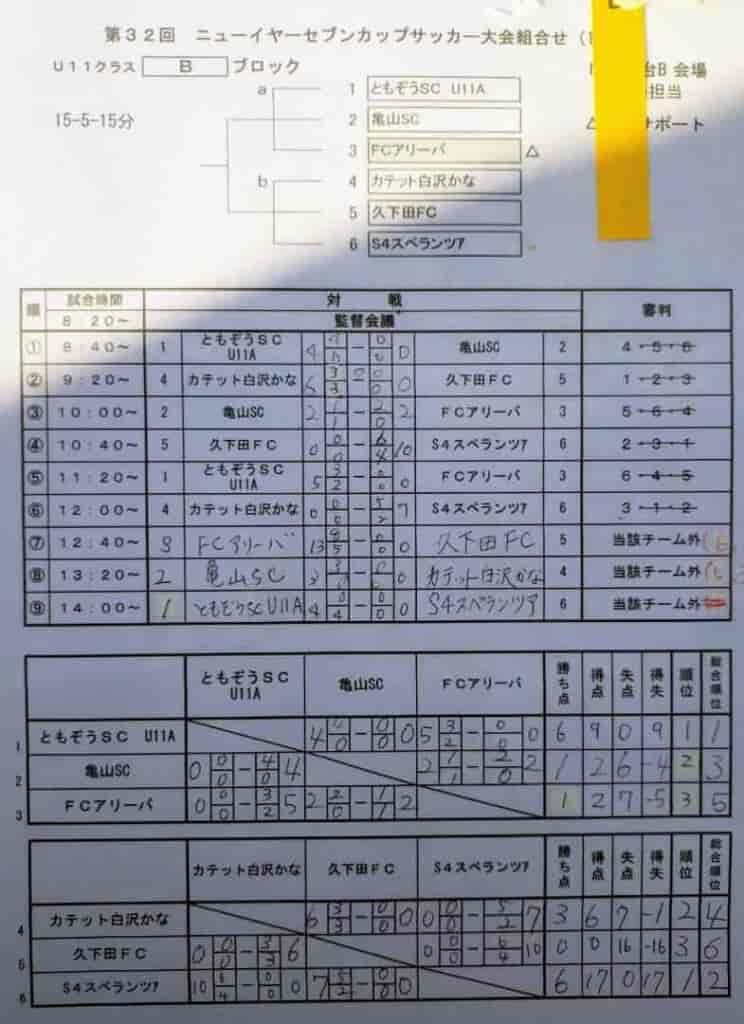 第32回 ニューイヤーセブンカップサッカー大会組合せ
U11クラス B ブロック
台B 会場
担当
15-5-15分
サポート
a
1 ともぞうSC U11A
2 亀山SC
3 FCアリーバ △
b
4 カテット白沢かな
5 久下田FC
6 S4スペランツァ
順 試合時間 対 戦 審判
8:20～ 監督会議
① 8:40～ 1 ともぞうSC U11A 4 - 0 0 0 亀山SC 2 4・5・6
② 9:20～ 4 カテット白沢かな 6 3 3 - 0 0 0 久下田FC 5 1・2・3
③ 10:00～ 2 亀山SC 2 1 1 - 2 0 2 FCアリーバ 3 5・6・4
④ 10:40～ 5 久下田FC 0 0 0 - 6 4 10 S4スペランツァ 6 2・3・1
⑤ 11:20～ 1 ともぞうSC U11A 5 3 2 - 0 0 0 FCアリーバ 3 6・4・5
⑥ 12:00～ 4 カテット白沢かな 0 0 0 - 5 2 7 S4スペランツァ 6 3・1・2
⑦ 12:40～ 3 FCアリーバ 13 5 - 0 0 0 久下田FC 5 当該チーム外
⑧ 13:20～ 2 亀山SC 3 3 - 0 0 カテット白沢かな 4 当該チーム外
⑨ 14:00～ 1 ともぞうSC U11A 4 0 4 - 0 0 0 S4スペランツァ 6 当該チーム外
ともぞうSC U11A 亀山SC FCアリーバ 勝ち点 得点 失点 得失 順位 総合順位
1 ともぞうSC U11A 4 4 0 - 0 0 0 5 3 2 - 0 0 0 6 9 0 9 1 1
2 亀山SC 0 0 0 - 4 0 4 2 1 1 - 2 0 2 1 2 6 -4 2 3
3 FCアリーバ 0 0 0 - 3 2 5 2 2 0 - 1 1 2 1 2 7 -5 3 5
カテット白沢かな 久下田FC S4スペランツァ 勝ち点 得点 失点 得失 順位 総合順位
4 カテット白沢かな 6 3 3 - 0 0 0 0 0 0 - 5 2 7 3 6 7 -1 2 4
5 久下田FC 0 0 0 - 3 3 6 0 0 0 - 6 4 10 0 0 16 -16 3 6
6 S4スペランツァ 10 6 4 - 0 0 0 7 5 2 - 0 0 0 6 17 0 17 1 2